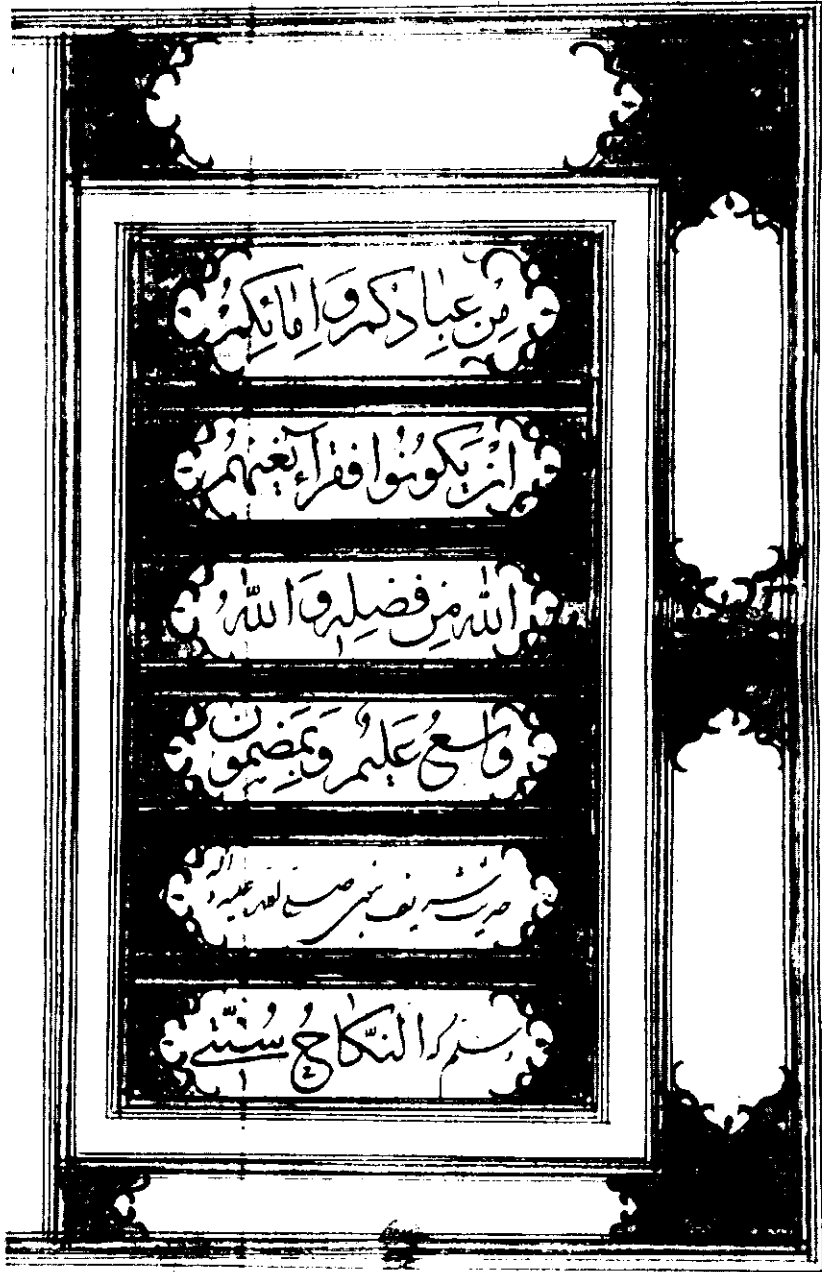 مِن عِبادِكُمْ وَاِمٰائِكُمْ
اِنْ يَكُونُوا فُقَرآءَ يُغْنِهِمُ
اللّٰهُ مِن فَضْلِهِ وَاللّٰهُ
وٰاسِعٌ عَليٖمٌ وَبِمَضمِونِ
حدیث شریف نبوی صلی الله علیه و آله
وسلم که النِّكاحُ سُنَّتي